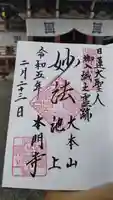 日蓮大聖人
御入滅之霊跡
妙法
大本山
池上
本門寺
令和五年
二月二十三日